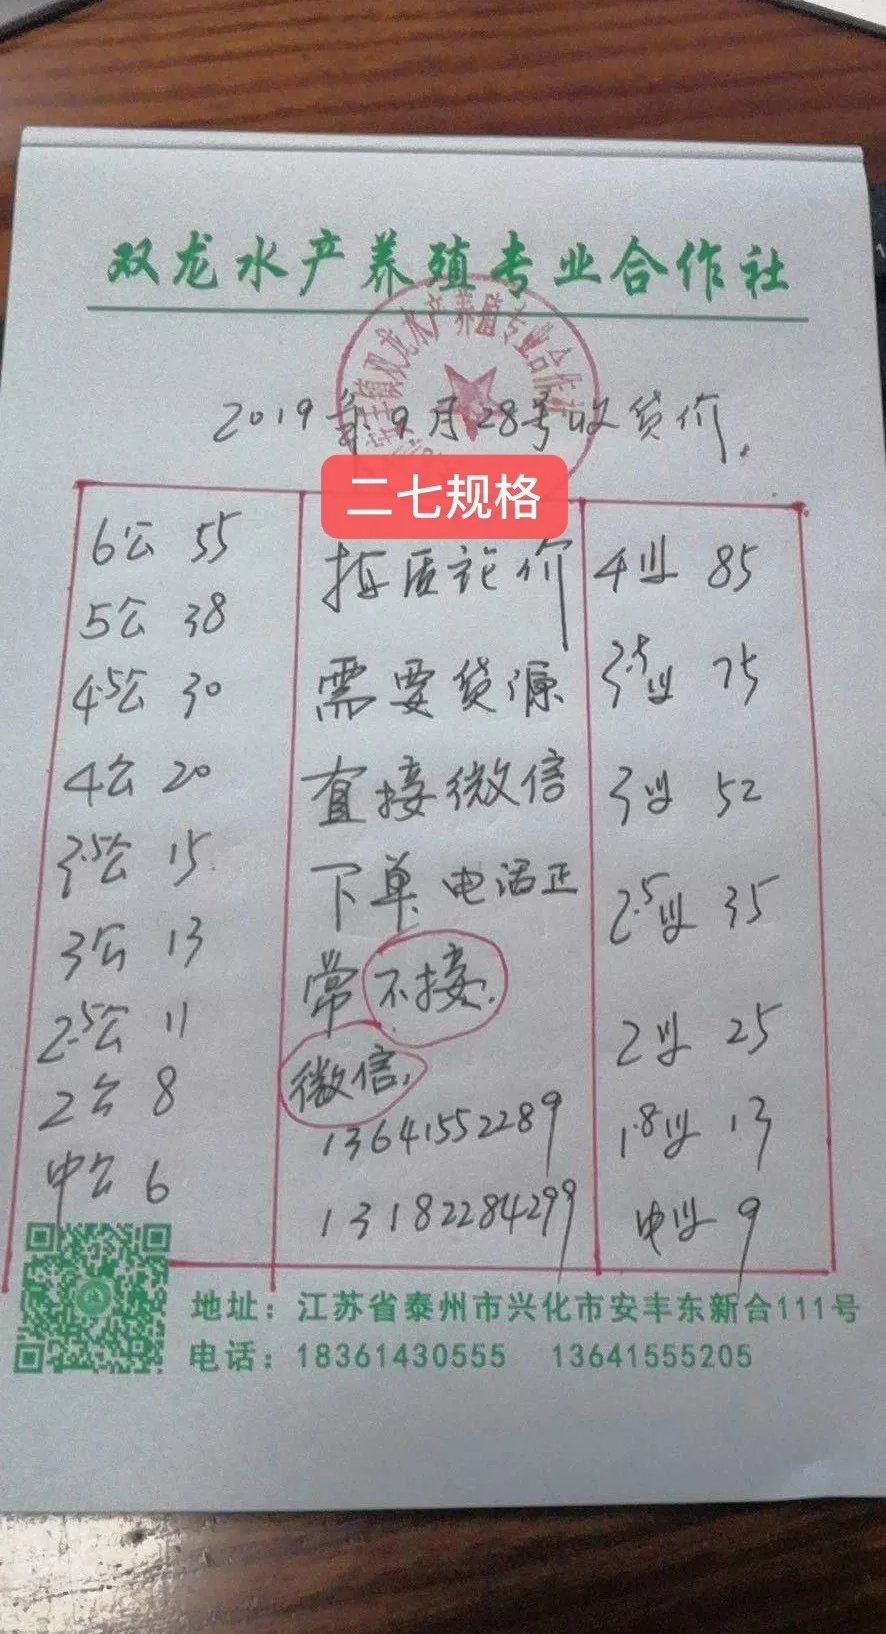 双龙水产养殖专业合作社
安丰镇双龙水产养殖专业合作社
2019年9月28号收货价.
二七规格
6公 55
5公 38
4.5公 30
4公 20
3.5公 15
3公 13
2.5公 11
2公 8
中公 6
按质论价
需要货源
直接微信
下单 电话正
常不接.
微信.
13641552289
13182284299
4业 85
3.5业 75
3业 52
2.5业 35
2业 25
1.8业 13
中业 9
地址：江苏省泰州市兴化市安丰东新合111号
电话：18361430555 13641555205